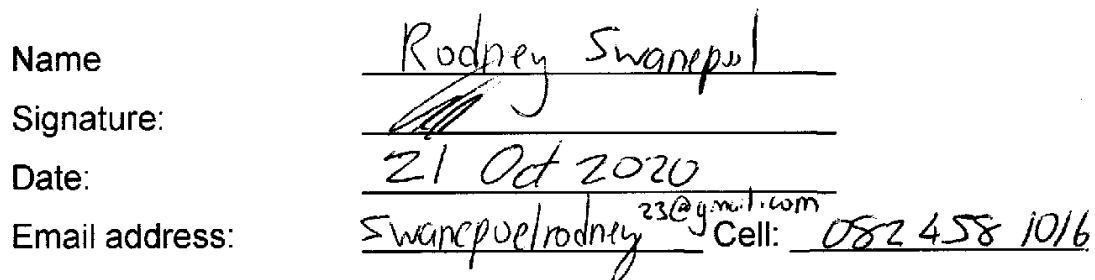 Name Rodney Swanepoel
Signature:
Date: 21 Oct 2020
Email address: swanepoelrodney23@gmail.com Cell: 082 458 1016